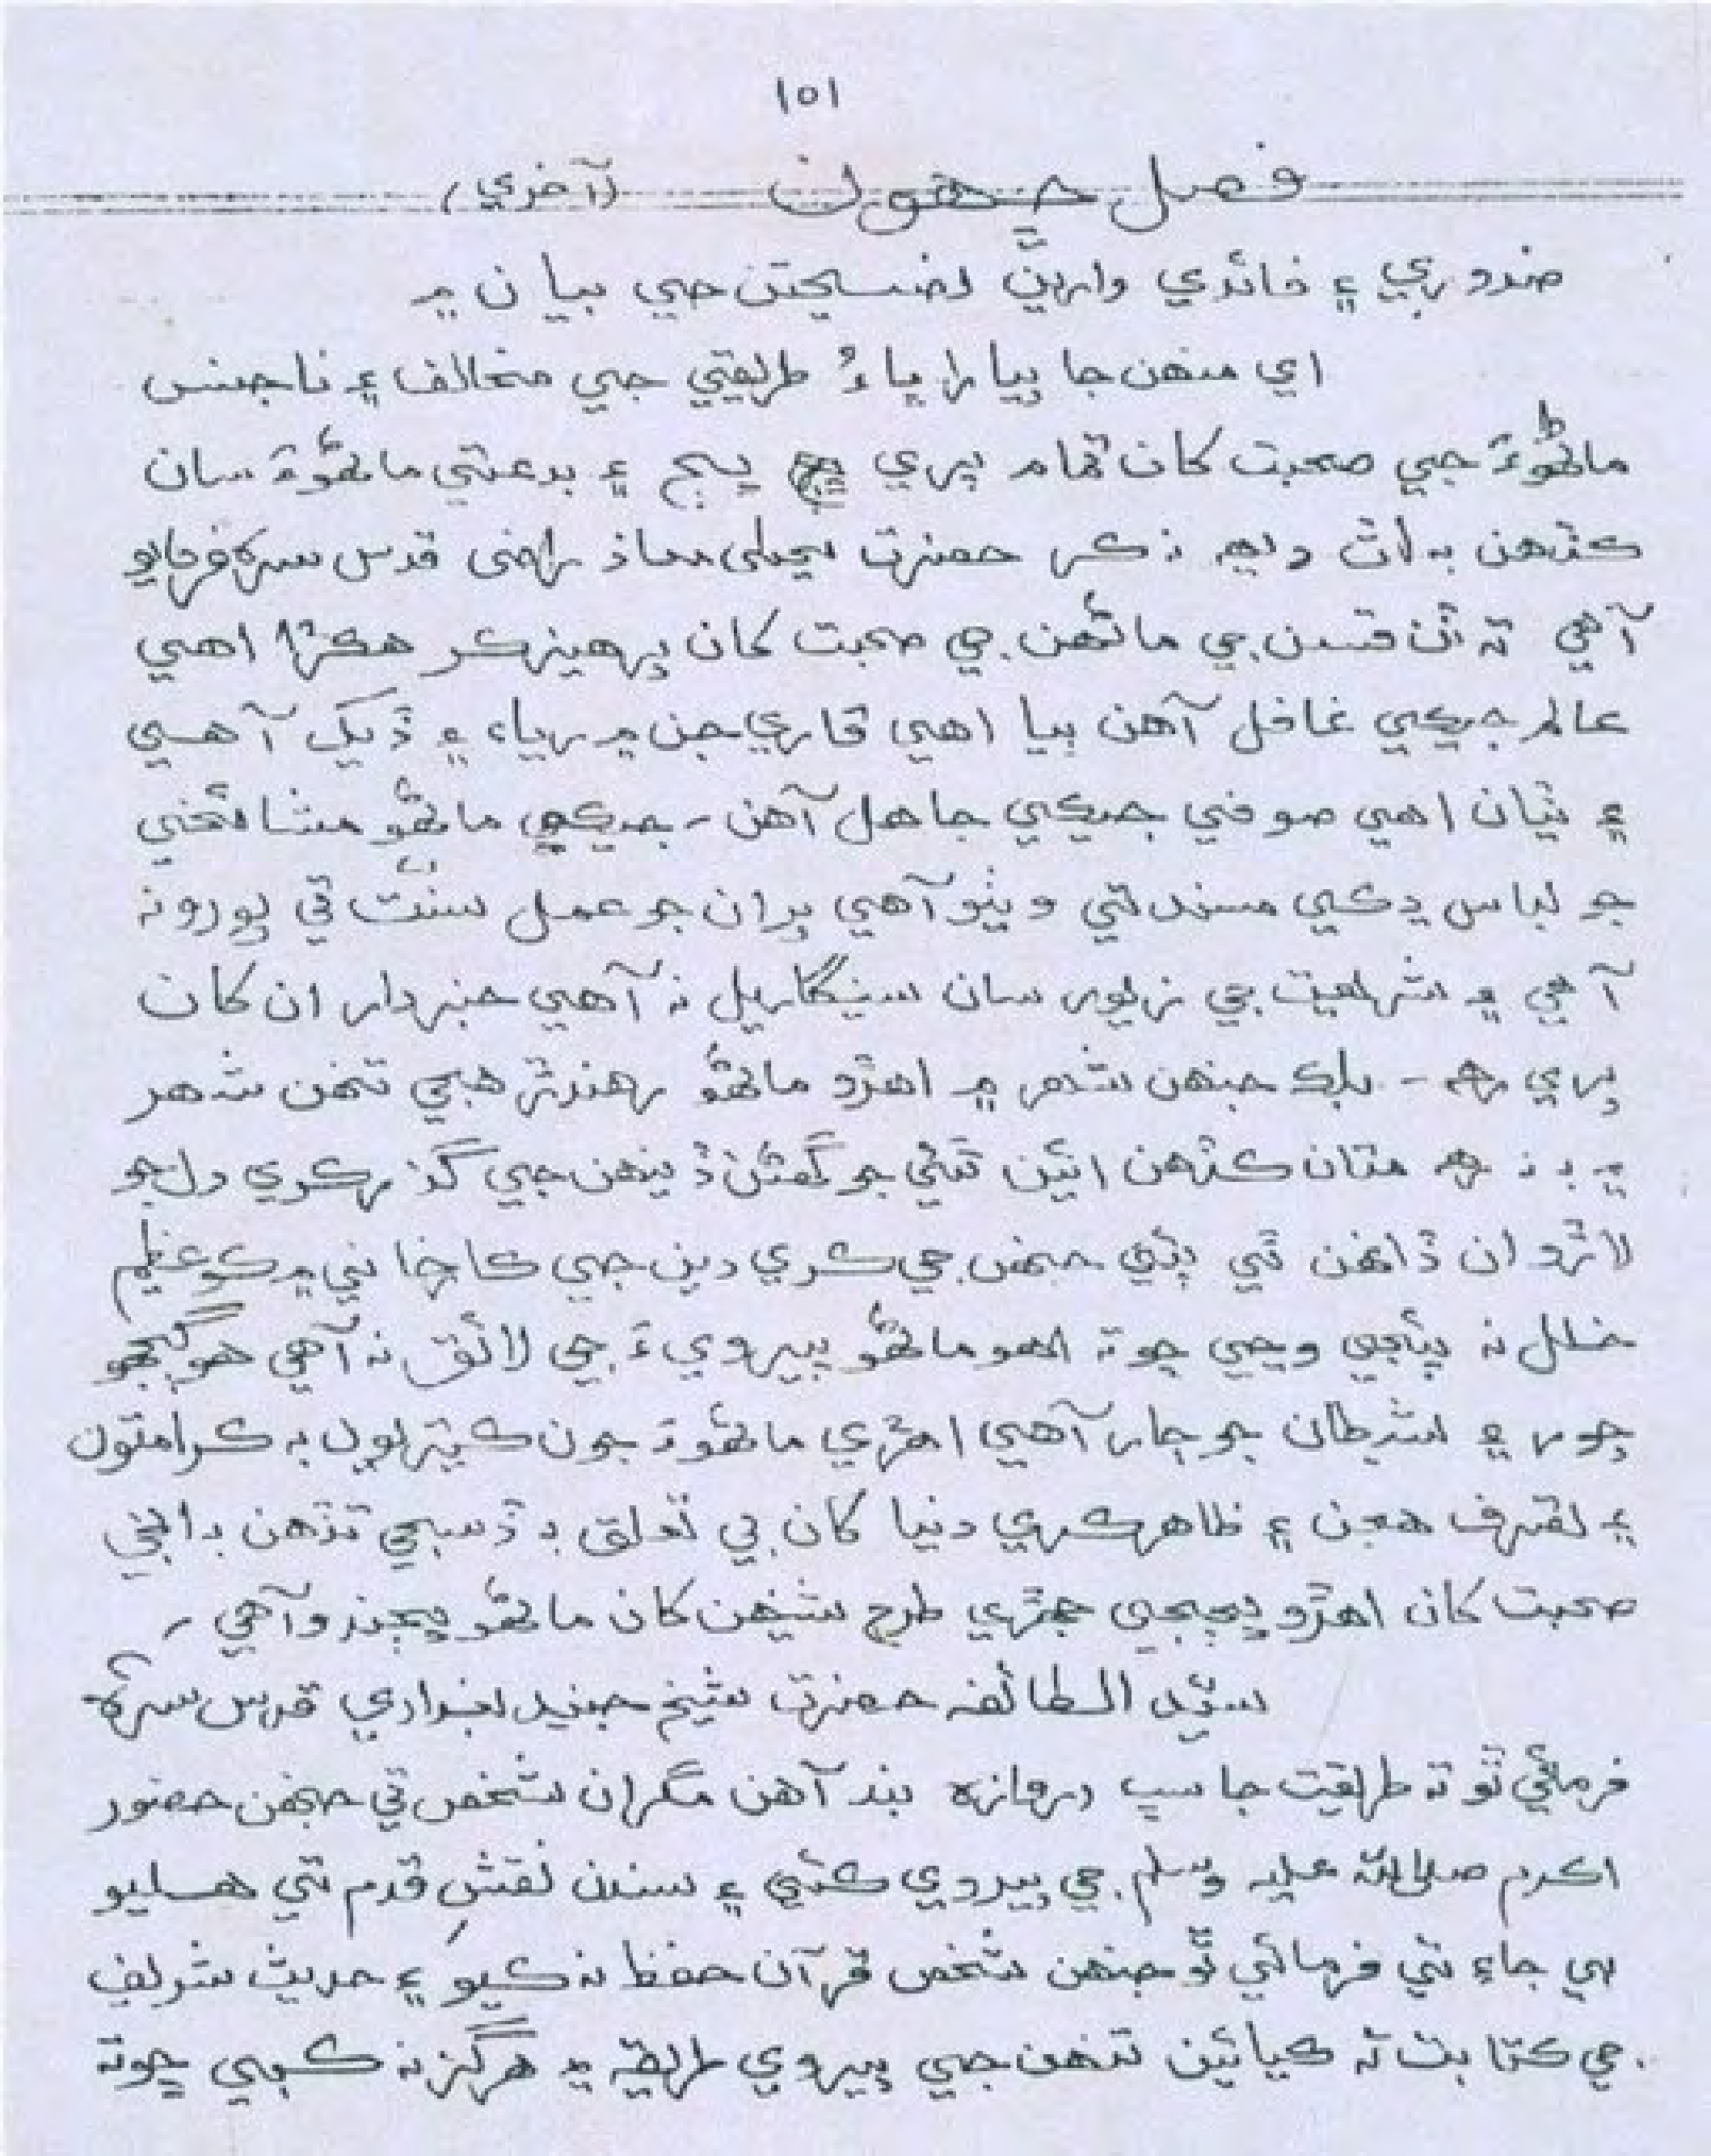 ١٥١
فصل ڇهون (آخري)
ضروري ۽ فائدي وارين نصيحتن جي بيان ۾
اي منهن جا پيارا ڀاءُ طريقي جي مخالف ۽ ناجنس
ماڻهوءَ جي صحبت کان تمام پري ڀڄ ۽ بدعتي ماڻهوءَ سان
ڪڏهن به لاڳ ويهه نه ڪر حضرت يحيٰ معاذ رازي قدس سره فرمايو
آهي ته ٽن قسمن جي ماڻهن جي صحبت کان پرهيز ڪر هڪڙا اهي
عالم جيڪي غافل آهن ٻيا اهي قاري جن ۾ رياء ۽ ڏيک آهي
۽ ٽيان اهي صوفي جيڪي جاهل آهن۔ جيڪو ماڻهو مشائخي
جو لباس ڍڪي مسند تي ويٺو آهي پر ان جو عمل سنّت تي پورو نه
آهي ۽ شريعت جي زيور سان سينگاريل نه آهي خبردار ان کان
پري رهه - بلڪ جنهن شهر ۾ اهڙو ماڻهو رهندڙ هجي تنهن شهر
۾ به نه رهه متان ڪڏهن ائين ٿئي جو گهڻن ڏينهن جي گذر ڪري دل جو
لاڙو ان ڏانهن ٿي پئي جنهن جي ڪري دين جي ڪارخاني ۾ ڪو عظيم
خلل نه پئجي وڃي ڇو ته اهو ماڻهو پيرويءَ جي لائق نه آهي هو ڳجهو
چور ۽ شيطان جو ڄار آهي اهڙي ماڻهوءَ جون ڪيتريون به ڪرامتون
۽ تصرف هجن ۽ ظاهر ڪري دنيا کان بي تعلق به ڏسجي تڏهن به انهي
صحبت کان اهڙو ڀڄجي جهڙي طرح شينهن کان ماڻهو ڀڄندو آهي۔
سيّد الطائفه حضرت شيخ جنيد بغدادي قدس سرّهٗ
فرمائي ٿو ته طريقت جا سڀ دروازه بند آهن مگر ان شخص تي جنهن حضور
اڪرم صلي الله عليه وسلم جي پيروي ڪئي ۽ سندن نقشِ قدم تي هليو
ٻي جاءِ تي فرمائي ٿو جنهن شخص قرآن حفظ نه ڪيو ۽ حديث شريف
جي ڪتابت نه ڪيائين تنهن جي پيروي طريقه ۾ هرگز نه ڪبي ڇوته